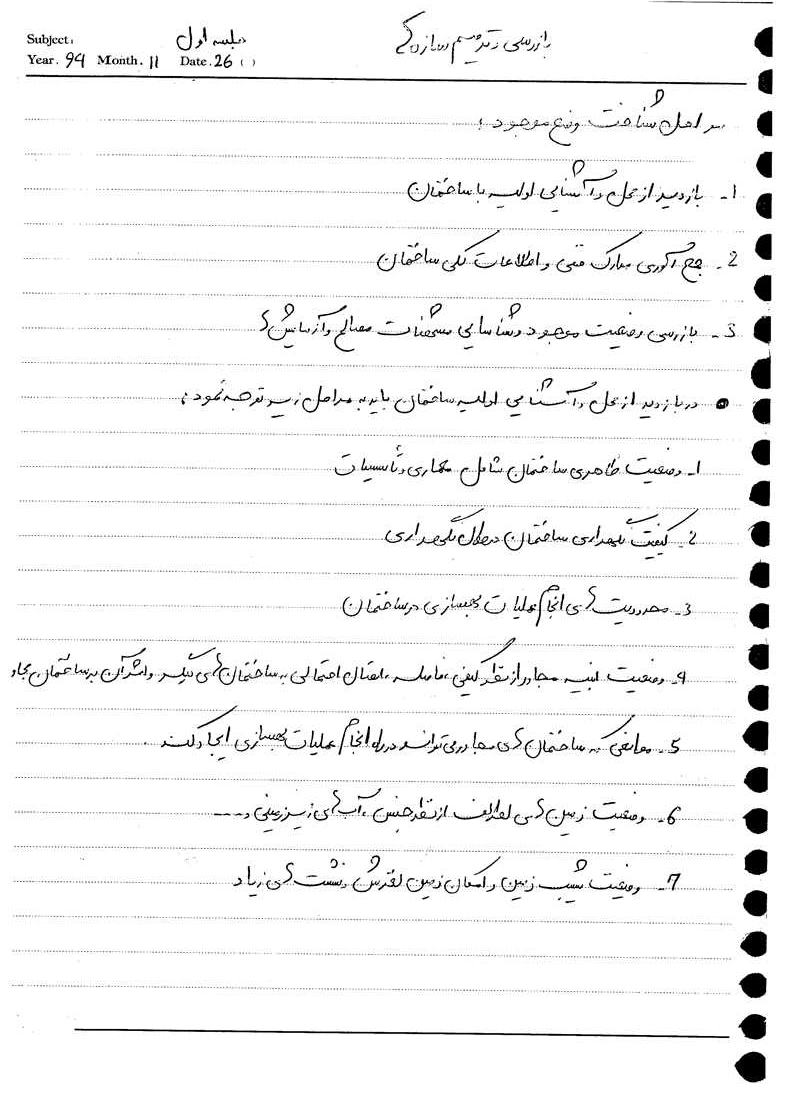 Subject: جلسه اول
Year. 94 Month. 11 Date. 26 ( )
بازرسی و ترمیم سازه ها
مراحل شناخت وضع موجود :
1- بازدید از محل و آشنایی اولیه با ساختمان
2- جمع آوری مدارک فنی و اطلاعات کلی ساختمان
3- بازرسی وضعیت موجود و شناسایی مشخصات مصالح و آزمایش ها
• در بازدید از محل و آشنایی اولیه ساختمان باید به مراحل زیر توجه نمود :
1- وضعیت ظاهری ساختمان شامل معماری و تأسیسات
2- کیفیت نگهداری ساختمان در طول نگهداری
3- محدودیت های انجام عملیات بهسازی در ساختمان
4- وضعیت ابنیه مجاور از نظر کیفی ، فاصله ، اتصال احتمالی به ساختمان های دیگر و اثر آن بر ساختمان مجاو
5- موانعی که ساختمان های مجاور می توانند در راه انجام عملیات بهسازی ایجاد کنند .
6- وضعیت زمین های اطراف از نظر جنس ، آب های زیرزمینی و ....
7- وضعیت شیب زمین و امکان زمین لغزش و نشست های زیاد